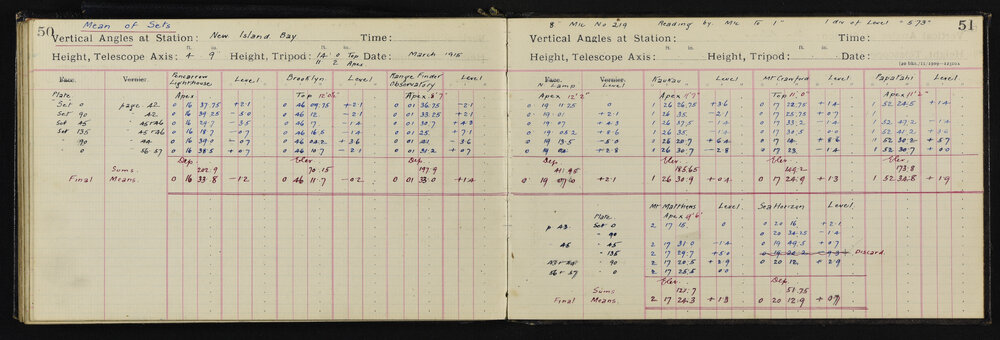 50
Mean of Sets
Vertical Angles at Station: New Island Bay Time:
ft. in. ft. in.
Height, Telescope Axis: 4 9 Height, Tripod: 14 0 Top Date: March 1915
11 2 Apex
Face. Vernier. Pencarrow Lighthouse Level Brooklyn Level Range Finder Observatory Level
Plate Apex Top 12'0½" Apex 8'7"
Set 0 page 42 0 16 37.75 +2.1 0 46 09.75 +2.1 0 01 36.75 -2.1
Set 90 " 42 0 16 39.25 -5.0 0 46 12. -2.1 0 01 33.25 +2.1
Set 45 " 45+46 0 16 29.7 -3.5 0 46 17 -1.4 0 01 30.7 +4.3
Set 135 " 45+46 0 16 18.7 -0.7 0 46 16.5 -1.4 0 01 25. +7.1
" 90 " 44 0 16 39.0 +0.7 0 46 04.2 +3.6 0 01 41. -3.6
" 0 " 56-57 0 16 38.5 +0.7 0 46 10.7 -2.1 0 01 31.2 +0.7
Dep. Elev. Dep.
Sums. 202.9 70.15 197.9
Final Means. 0 16 33.8 -1.2 0 46 11.7 -0.2 0 01 33.0 +1.4
8" Mic No 219 Reading by Mic to 1" 1 div of Level = 5.73" 51
Vertical Angles at Station: Time:
ft. in. ft. in.
Height, Telescope Axis: Height, Tripod: Date:
Face. Vernier. Kaukau Level Mt Crawford Level Papatahi Level
N Lamp Level
Apex 12'2" Apex 9'7" Top 11'0" Apex 11'2"
0 19 11.25 0 1 26 26.75 +3.6 0 17 22.75 +1.4 1 52 24.5 +1.4
0 19 01. +2.1 1 26 35 -2.1 0 17 25. -2.1 1
0 19 07 +4.3 1 26 37.5 -1.4 0 17 33.2 -1.4 1 52 47.2 -1.4
0 19 05.2 +8.6 1 26 35. -1.4 0 17 30.5 -0.0 1 52 41.2 +3.6
0 19 13.5 -5.0 1 26 20.7 +6.4 0 17 14. +8.6 1 52 30.2 +5.7
0 19 04. +2.8 1 26 30.7 -2.8 0 17 23. -1.4 1 52 30.7 +0.0
Dep. Elev. Elev. Elev.
41.95 185.65 149.2 173.8
0 19 07.0 +2.1 1 26 30.9 +0.4 0 17 24.9 +1.3 1 52 34.8 +1.9
Mt Matthews Level Sea Horizon Level
Plate Apex 9'6"
p 43. Set 0 2 17 15. 0 0 20 16 +2.1
" 90 0 20 34.25 -1.4
45 " 45 2 17 31.0 -1.4 0 19 49.5 +0.7
" 135 2 17 29.7 +5.0 0 19 24.2 -9.3 Discard
" 90 2 17 20.5 +2.9 0 20 12. +2.9
56+57 " 0 2 17 25.5 0.0
Elev. Dep.
Sums 121.7 51.75
Final Means. 2 17 24.3 +1.3 0 20 12.9 +0.7